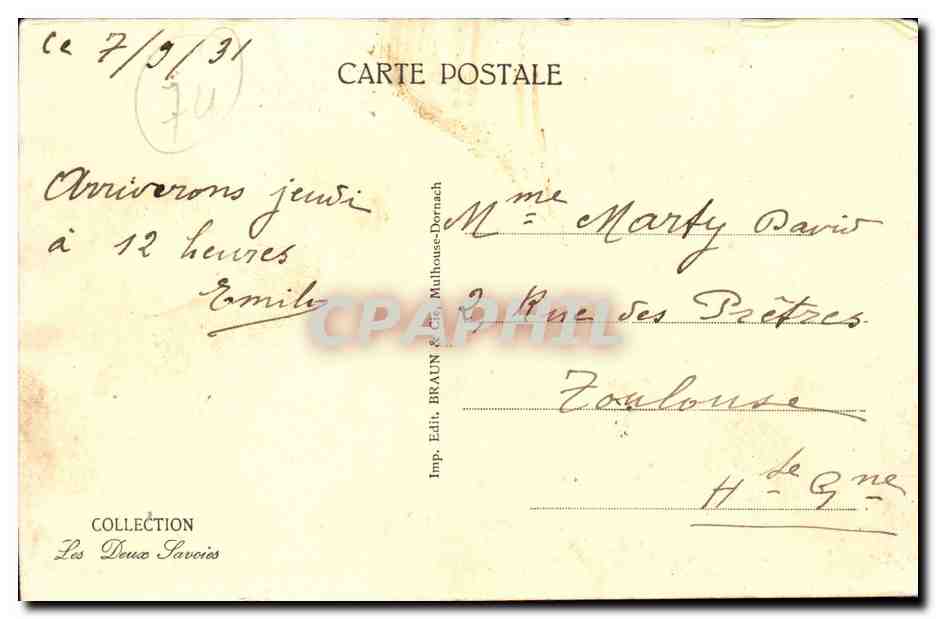 Ce 7/9/31
74
CARTE POSTALE
Arriverons jeudi
à 12 heures
Emile
Imp. Edit. BRAUN & Cie, Mulhouse-Dornach
Mme Marty David
2, Rue des Prêtres
Toulouse
Hte Gne
COLLECTION
Les Deux Savoies
CPAPHIL